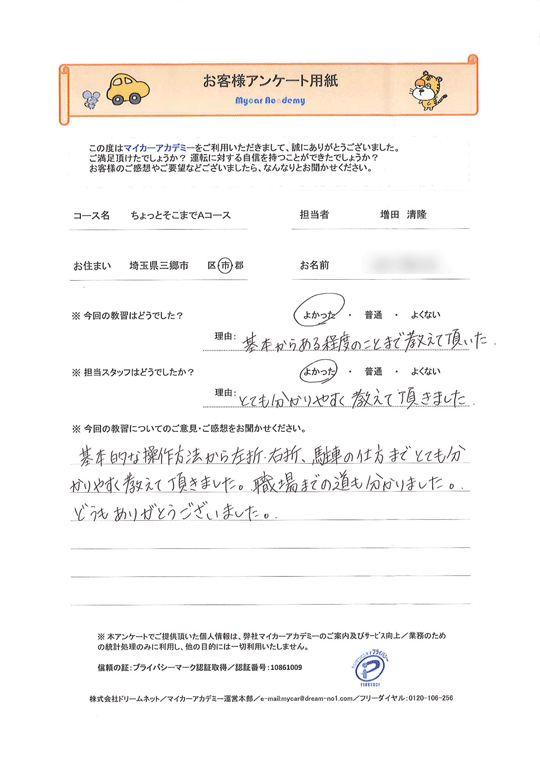 お客様アンケート用紙
Mycar Academy
この度はマイカーアカデミーをご利用いただきまして、誠にありがとうございました。
ご満足頂けたでしょうか？ 運転に対する自信を持つことができたでしょうか？
お客様のご感想やご要望などございましたら、なんなりとお聞かせください。
コース名 ちょっとそこまでAコース 担当者 増田 清隆
お住まい 埼玉県三郷市 区・市・郡 お名前
※ 今回の教習はどうでした？ よかった ・ 普通 ・ よくない
理由: 基本からある程度のことまで教えて頂いた.
※ 担当スタッフはどうでしたか？ よかった ・ 普通 ・ よくない
理由: とても分かりやすく教えて頂きました.
※ 今回の教習についてのご意見・ご感想をお聞かせください。
基本的な操作方法から左折.右折、駐車の仕方までとても分
かりやすく教えて頂きました。職場までの道も分かりました。
どうもありがとうございました。
※ 本アンケートでご提供頂いた個人情報は、弊社マイカーアカデミーのご案内及びサービス向上／業務のため
の統計処理のみに利用し、他の目的には一切利用いたしません。
信頼の証：プライバシーマーク認証取得／認証番号：10861009
株式会社ドリームネット／マイカーアカデミー運営本部／e-mail:mycar@dream-no1.com／フリーダイヤル：0120-106-256